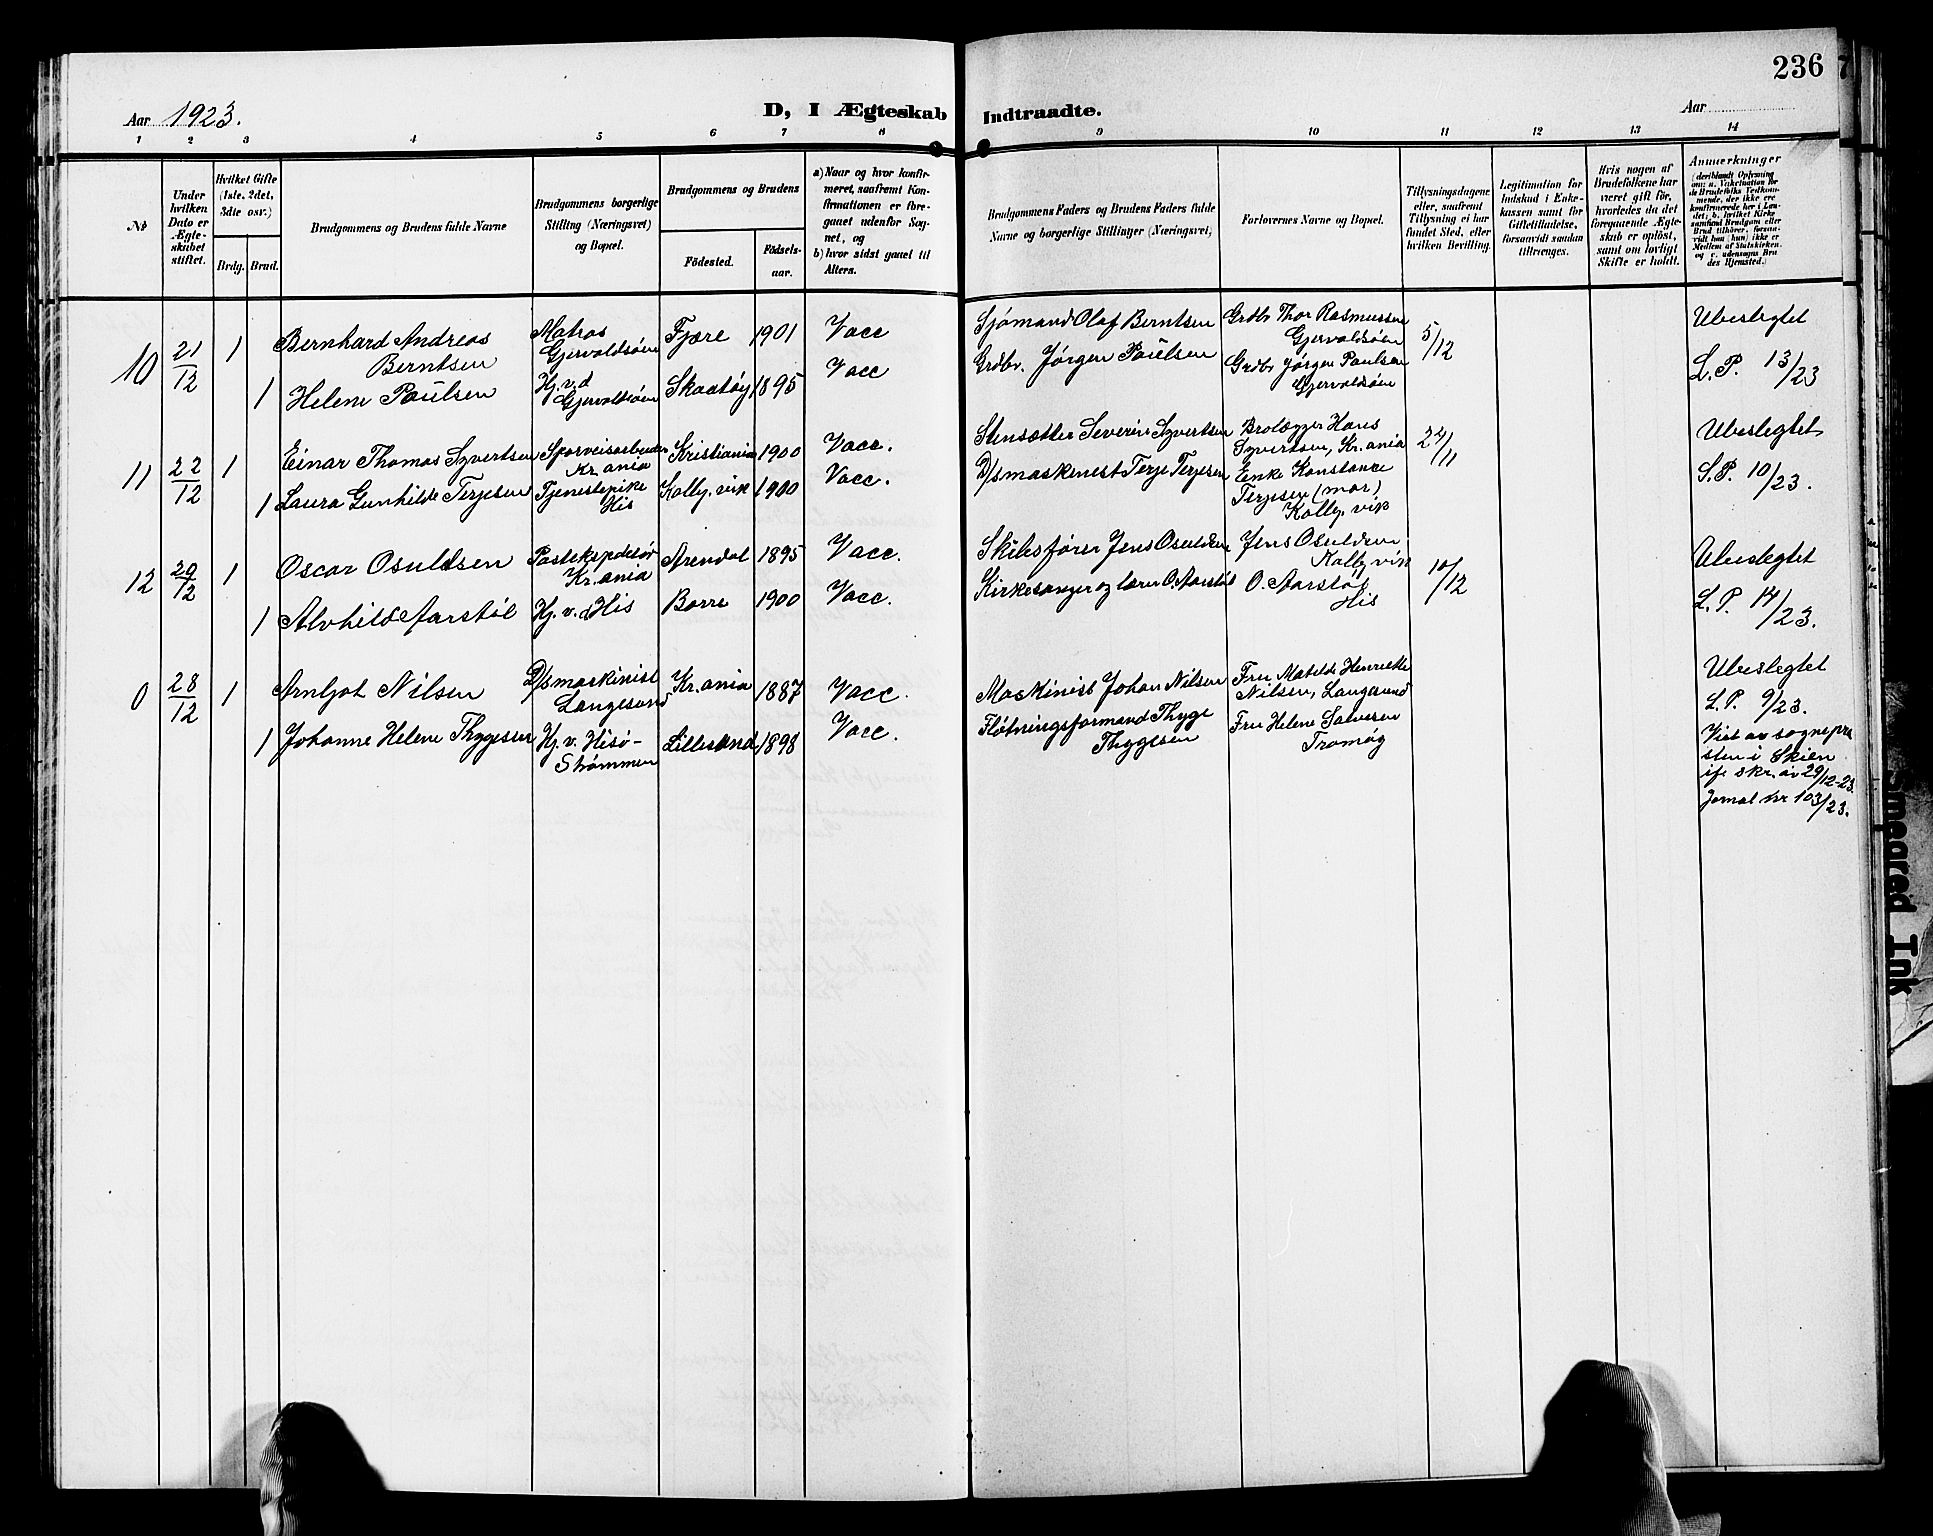 236
Aar 1923.
D, I Ægteskab Indtraadte.
Aar
1 2 3 4 5 6 7 8 9 10 11 12 13 14
№
Under
hvilken
Dato er
Ægte-
skabet
stiftet.
Hvilket Gifte
(1ste, 2det,
3die osv.)
Brdg. Brud.
Brudgommens og Brudens fulde Navne
Brudgommens borgerlige
Stilling (Næringsvei)
og Bopæl.
Brudgommens og Brudens
Fødested.
Fødsels-
aar.
a) Naar og hvor konfir-
meret, saafremt Kon-
firmationen er fore-
gaaet udenfor Sog-
net, og
b) hvor sidst gaaet til
Alters.
Brudgommens Faders og Brudens Faders fulde
Navne og borgerlige Stillinger (Næringsvei)
Forlovernes Navne og Bopæl.
Tillysningsdagene
eller, saafremt
Tillysning ei har
fundet Sted, efter
hvilken Bevilling.
Legitimation for
Indskud i Enke-
kassen samt for
Giftetilladelse,
forsaavidt saadan
tiltrænges.
Hvis nogen af
Brudefolkene har
været gift før,
hvorledes da det
foregaaende Ægte-
skab er opløst,
samt om lovligt
Skifte er holdt.
Anmerkninger
(deriblandt Oplysning
om: a. Vakcination for
de Brudefolks Vedkom-
mende, der ikke ere
konfirmerede her i Lan-
det; b. hvilket Kirke-
samfund Brudgom eller
Brud tilhører, forsaa-
vidt han (hun) ikke er
Medlem af Statskirken,
og c. udensogns Bru-
des Hjemsted.)
10 21/12 1
Bernhard Andreas
Berntsen
Matros
Gjervoldsøen
Fjære 1901 Vacc
Sjømand Olaf Berntsen
Grdbr Thor Rasmussen
Gjervoldsøen
5/12
Ubeslegtet
1 Helene Paulsen
Hj. v. d
Gjervoldsøen
Skaatøy 1895 Vacc
Grdbr. Jørgen Paulsen
Grdbr Jørgen Paulsen
Gjervoldsøen
L. P. 13/23
11 22/12 1
Einar Thomas Syvertsen
Sporveisarbeider
Kr.ania
Kristiania 1900 Vacc.
Stensætter Severin Syvertsen
Brolægger Hans
Syvertsen, Kr.ania
24/11
Ubeslegtet
1 Laura Gunhilde Terjesen
Tjenestepike
His
Kolbj.vik 1900 Vacc.
D/Smaskinist Terje Terjesen
Enke Konstance
Terjesen (mor)
Kolbj.vik
L.P. 10/23.
12 29/12 1
Oscar Osuldsen
Postekspeditør
Kr.ania
Arendal 1895 Vacc.
Skibsfører Jens Osuldsen
Jens Osuldsen
Kolbj.vik
10/12
Ubeslegtet
1 Alvhild Aarstøl
Hj. v. d His
Borre 1900 Vacc.
Kirkesanger og lærer O. Aarstøl
O. Aarstøl
His
L. P. 14/23.
0 28/12 1
Arnljot Nilsen
D/Smaskinist
Langesund
Kr.ania 1887 Vacc.
Maskinist Johan Nilsen
Fru Matelde Henriette
Nilsen, Langesund
Ubeslegtet
L. P. 9/23.
1 Johanne Helene Thygesen
Hj. v. Hisø-
Strømmen
Lillesand 1898 Vacc.
Fløtningsformand Thyge
Thygesen
Fru Helene Salvesen
Tromøy
Viet av sognepre
sten i Skien
ifl skr. av 29/12-23.
Jornal nr 103/23.
Smeared Ink